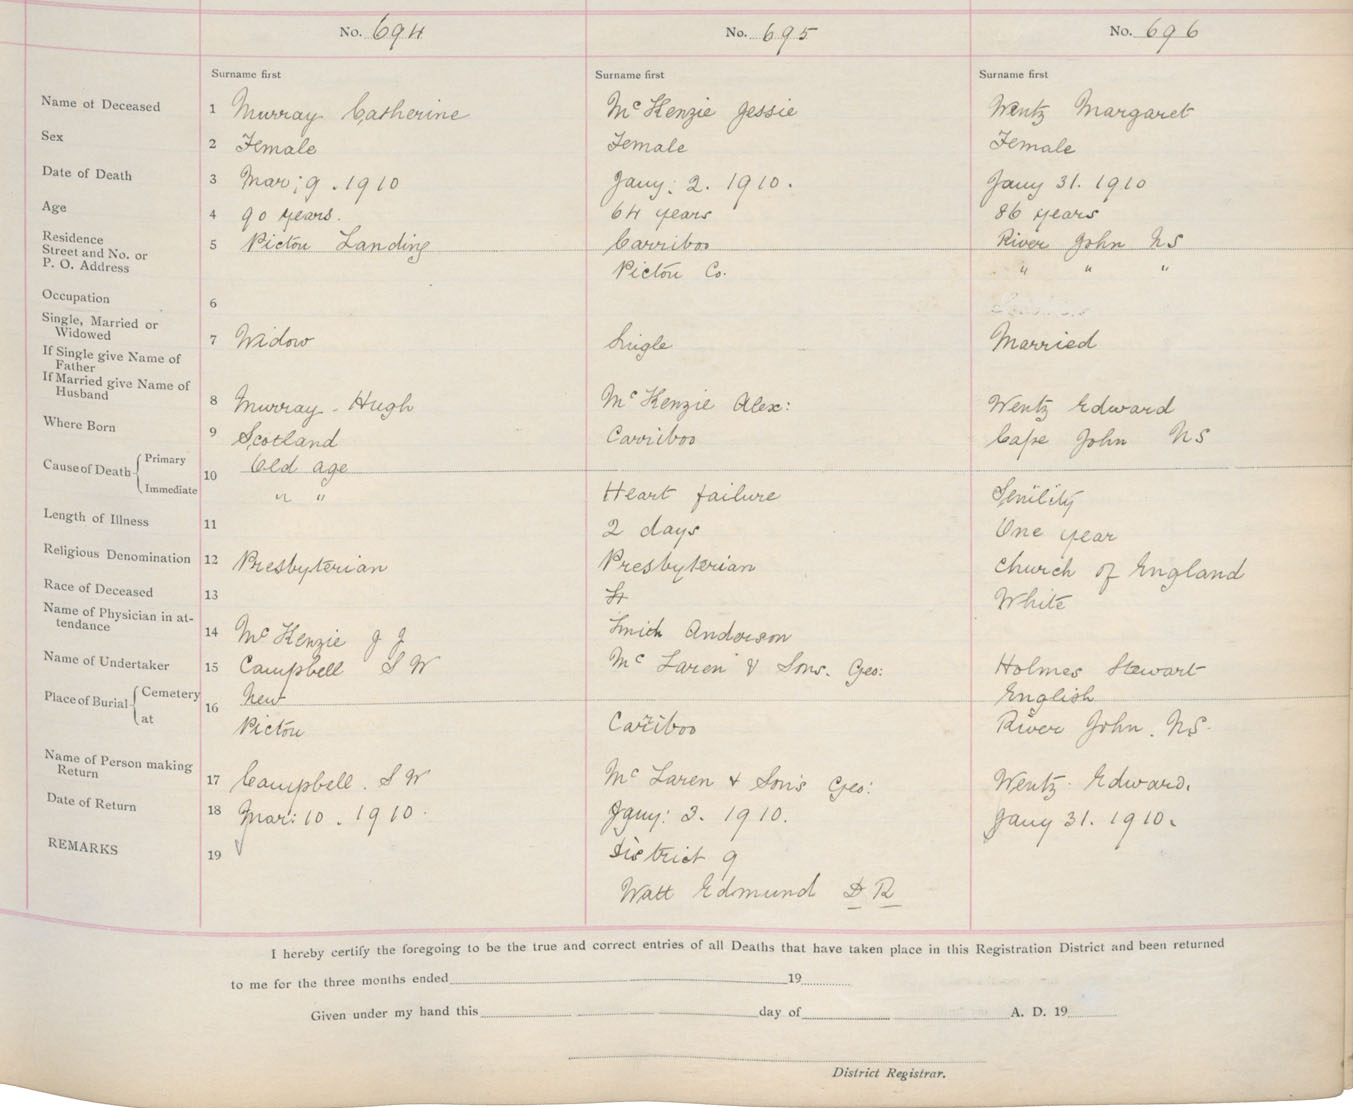 No. 694 No. 695 No. 696
Surname first Surname first Surname first
Name of Deceased 1 Murray Catherine McKenzie Jessie Wentz Margaret
Sex 2 Female Female Female
Date of Death 3 Mar; 9. 1910 Jany: 2. 1910. Jany 31. 1910
Age 4 90 years. 64 years 86 years
Residence
Street and No. or
P. O. Address
5 Pictou Landing Carriboo River John NS
Pictou Co. " " "
Occupation 6
Single, Married or
Widowed
7 Widow Single Married
If Single give Name of
Father
If Married give Name of
Husband
8 Murray - Hugh McKenzie Alex: Wentz Edward
Where Born 9 Scotland Carriboo Cape John NS
Cause of Death Primary
Immediate
10 Old age
" " Heart failure Senility
Length of Illness 11 2 days One year
Religious Denomination 12 Presbyterian Presbyterian Church of England
Race of Deceased 13 White
Name of Physician in at-
tendance
14 McKenzie J J Anderson
Name of Undertaker 15 Campbell S W McLaren & Sons. Geo: Holmes Stewart
Place of Burial Cemetery
at
16 New English
Pictou Cariboo River John. N.S.
Name of Person making
Return
17 Campbell. S W McLaren & Sons Geo: Wentz Edward.
Date of Return 18 Mar: 10. 1910. Jany: 3. 1910. Jany 31. 1910.
REMARKS 19 District 9
Watt Edmund D R
I hereby certify the foregoing to be the true and correct entries of all Deaths that have taken place in this Registration District and been returned
to me for the three months ended 19
Given under my hand this day of A. D. 19
District Registrar.